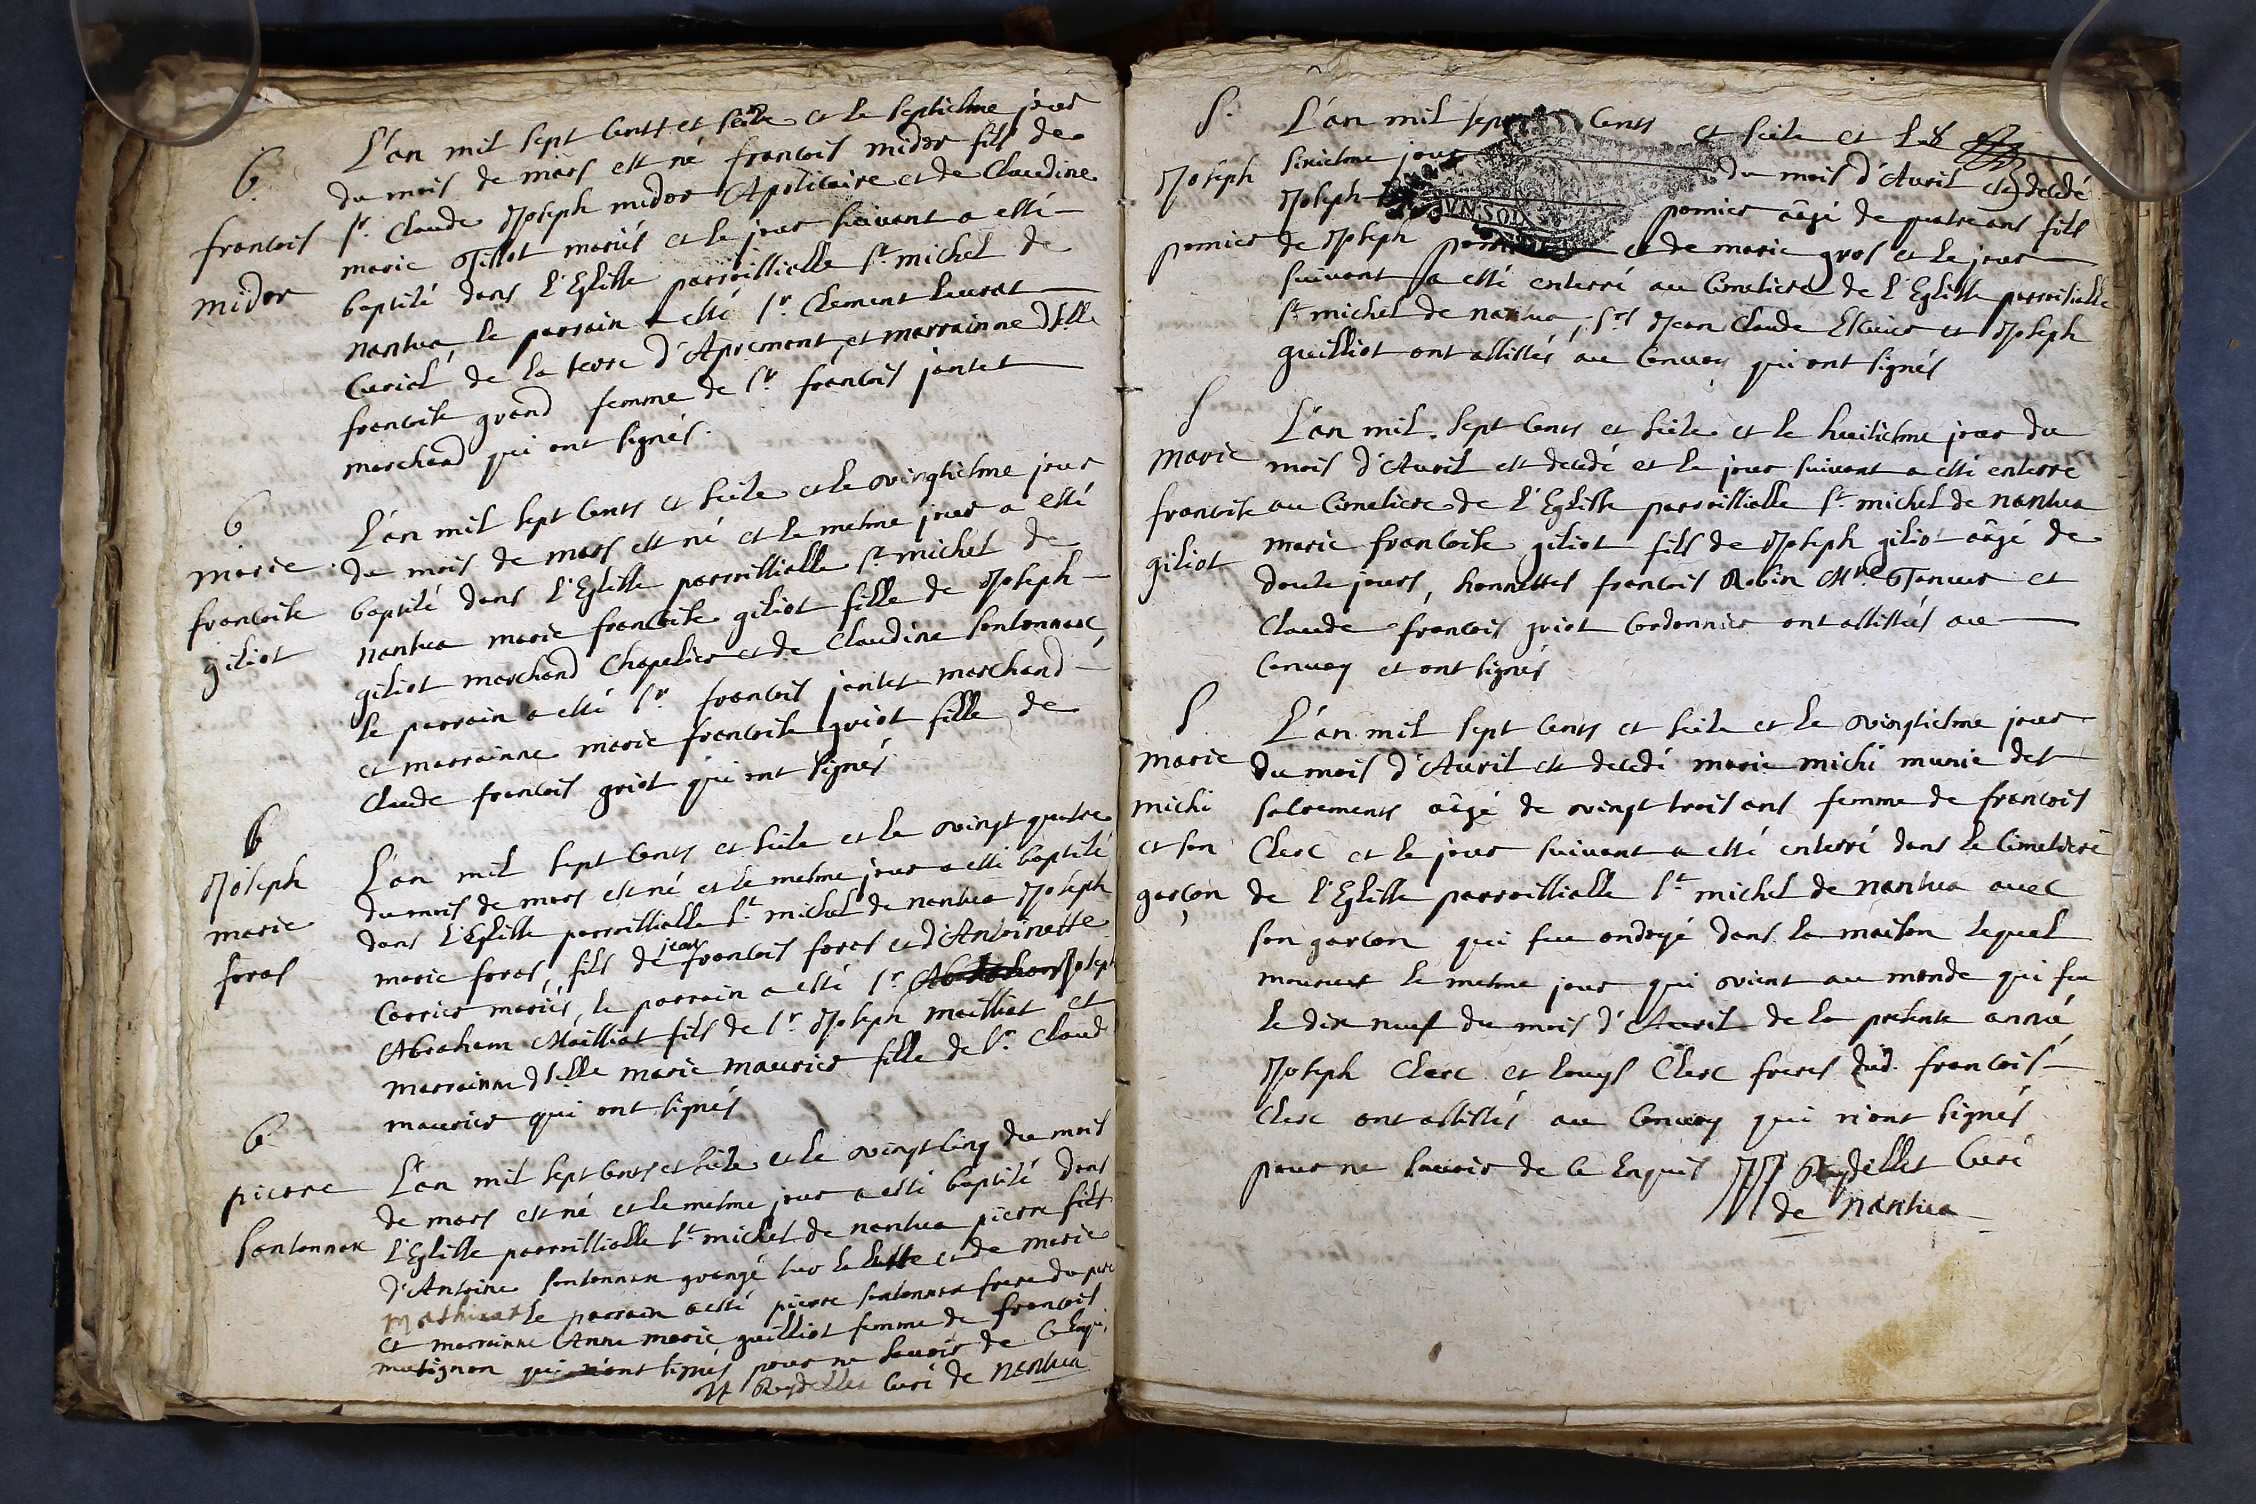 B.
francois
midor
L'an mil sept cents et seize et le septiesme jour
du mois de mars est né francois midor fils de
sr. Claude Joseph midor Apoticaire et de Claudine
marie Tissot mariés et le jour suivant a esté
baptisé dans l'Eglisse parroissialle st. michel de
nantua le parrain a esté sr. Clement
Curial de la terre d'Apremont, et marrainne dslle
francoise grand femme de sr. francois jantet
marchand qui ont signés.
B
marie
francoise
giliot
L'an mil sept cents et seize et le vingtiesme jour
du mois de mars est né et le mesme jour a esté
baptisé dans l'Eglisse parroissialle st. michel de
nantua marie francoise giliot fille de Joseph
giliot marchand Chapelier et de Claudine sontonnax,
le parrain a esté sr. francois jantet marchand
et marrainne marie francoise griot fille de
Claude francois griot qui ont signés
B
Joseph
marie
foras
L'an mil sept cents et seize et le vingt quatre
du mois de mars est né et le mesme jour a esté baptisé
dans l'Eglisse parroissialle st. michel de nantua Joseph
marie foras, fils de jean francois foras et d'Antoinette
Carrier mariés, le parrain a esté sr. Joseph
Abraham Mailliat fils de sr. Joseph mailliat et
marrainne dslle marie maurier fille de sr. Claude
maurier qui ont signés
B
pierre
sontonnax
L'an mil sept cents et seize et le vingt cinq du mois
de mars est né et le mesme jour a esté baptisé dans
l'Eglisse parroissialle st. michel de nantua pierre fils
d'Antoine sontonnax grangé sur la et de marie
mathieu le parrain a esté pierre sontonnax frere du pere
et marrainne Anne marie guilliot femme de francois
mutignon qui n'ont signés pour ne scavoir de ce Enqui
JJ Reydellet Curé de nantua
S.
Joseph
pomier
L'an mil sept cents et seize et le
sixiesme jour du mois d'Avril est decedé
Joseph pomier âagé de quatre ans fils
de Joseph pomier et de marie gros et le jour
suivant a esté enterré au Cimetiere de l'Eglisse parroissialle
st. michel de nantua, srs Jean Claude Escuier et Joseph
guilliot ont assistés au Convoy qui ont signés
S
marie
francoise
giliot
L'an mil sept cents et seize et le huitiesme jour du
mois d'Avril est decedé et le jour suivant a esté enterre
au Cimetiere de l'Eglisse parroissialle st. michel de nantua
marie francoise giliot fils de Joseph giliot âagé de
douze jours, honnestes francois Robin Mtre Tanneur et
Claude francois griot Cordonnier ont assistés au
Convoy et ont signés
S
marie
michi
et son
garçon
L'an mil sept cents et seize et le vingtiesme jour
du mois d'Avril est decedé marie michi munie des
sacrements âagé de vingt trois ans femme de francois
Clerc et le jour suivant a esté enterré dans le Cimetiere
de l'Eglisse parroissialle st. michel de nantua avec
son garcon qui fut ondoyé dans la maison lequel
mourust le mesme jour qui vient au monde qui fu
le dix neuf du mois d'Avril de la presente année
Joseph Clerc et Louys Clerc freres dud. francois
Clerc ont assistés au Convoy qui n'ont signés
pour ne scavoir de ce Enquis JJ Reydellet Curé
de nantua